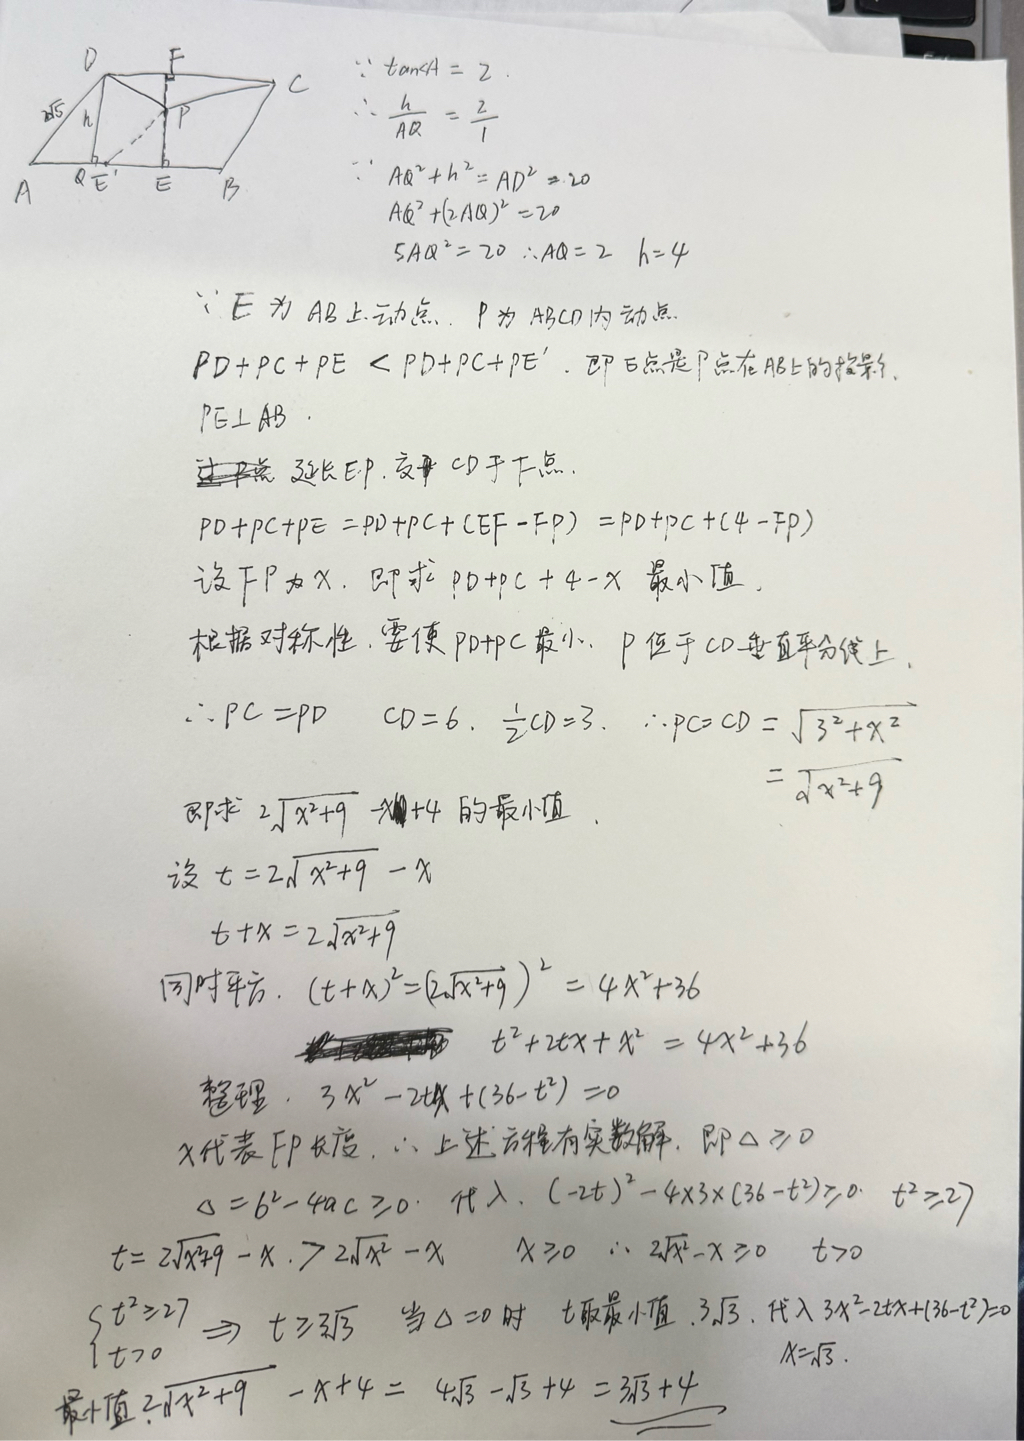 D F C
2√5 h P
A Q E' E B
∵ tan<A = 2.
∴ h/AQ = 2/1
∵ AQ²+h²=AD²=20
AQ²+(2AQ)²=20
5AQ²=20 ∴AQ=2 h=4
∵ E 为 AB上动点. P为ABCD内动点
PD+PC+PE < PD+PC+PE'. 即E点是P点在AB上的投影.
PE⊥AB.
延长EP. 交 CD于F点.
PD+PC+PE =PD+PC+(EF-FP) =PD+PC+(4-FP)
设FP为x. 即求 PD+PC+4-x 最小值.
根据对称性. 要使PD+PC最小. P位于CD垂直平分线上.
∴PC=PD CD=6. ½CD=3. ∴PC=CD=√(3²+x²)
=√(x²+9)
即求 2√(x²+9) -x+4 的最小值.
设 t=2√(x²+9) -x
t+x=2√(x²+9)
同时平方. (t+x)²=(2√(x²+9))² =4x²+36
t²+2tx+x² =4x²+36
整理. 3x²-2tx+(36-t²)=0
x代表FP长度. ∴上述方程有实数解. 即△≥0
△=b²-4ac≥0. 代入. (-2t)²-4x3x(36-t²)≥0. t²≥27
t=2√(x²+9) -x. >2√x² -x x≥0 ∴2√x²-x≥0 t>0
{t²≥27 t>0 ⇒ t≥3√3 当△=0时 t取最小值.3√3. 代入3x²-2tx+(36-t²)=0
x=√3.
最小值2√(x²+9) -x+4= 4√3-√3+4=3√3+4